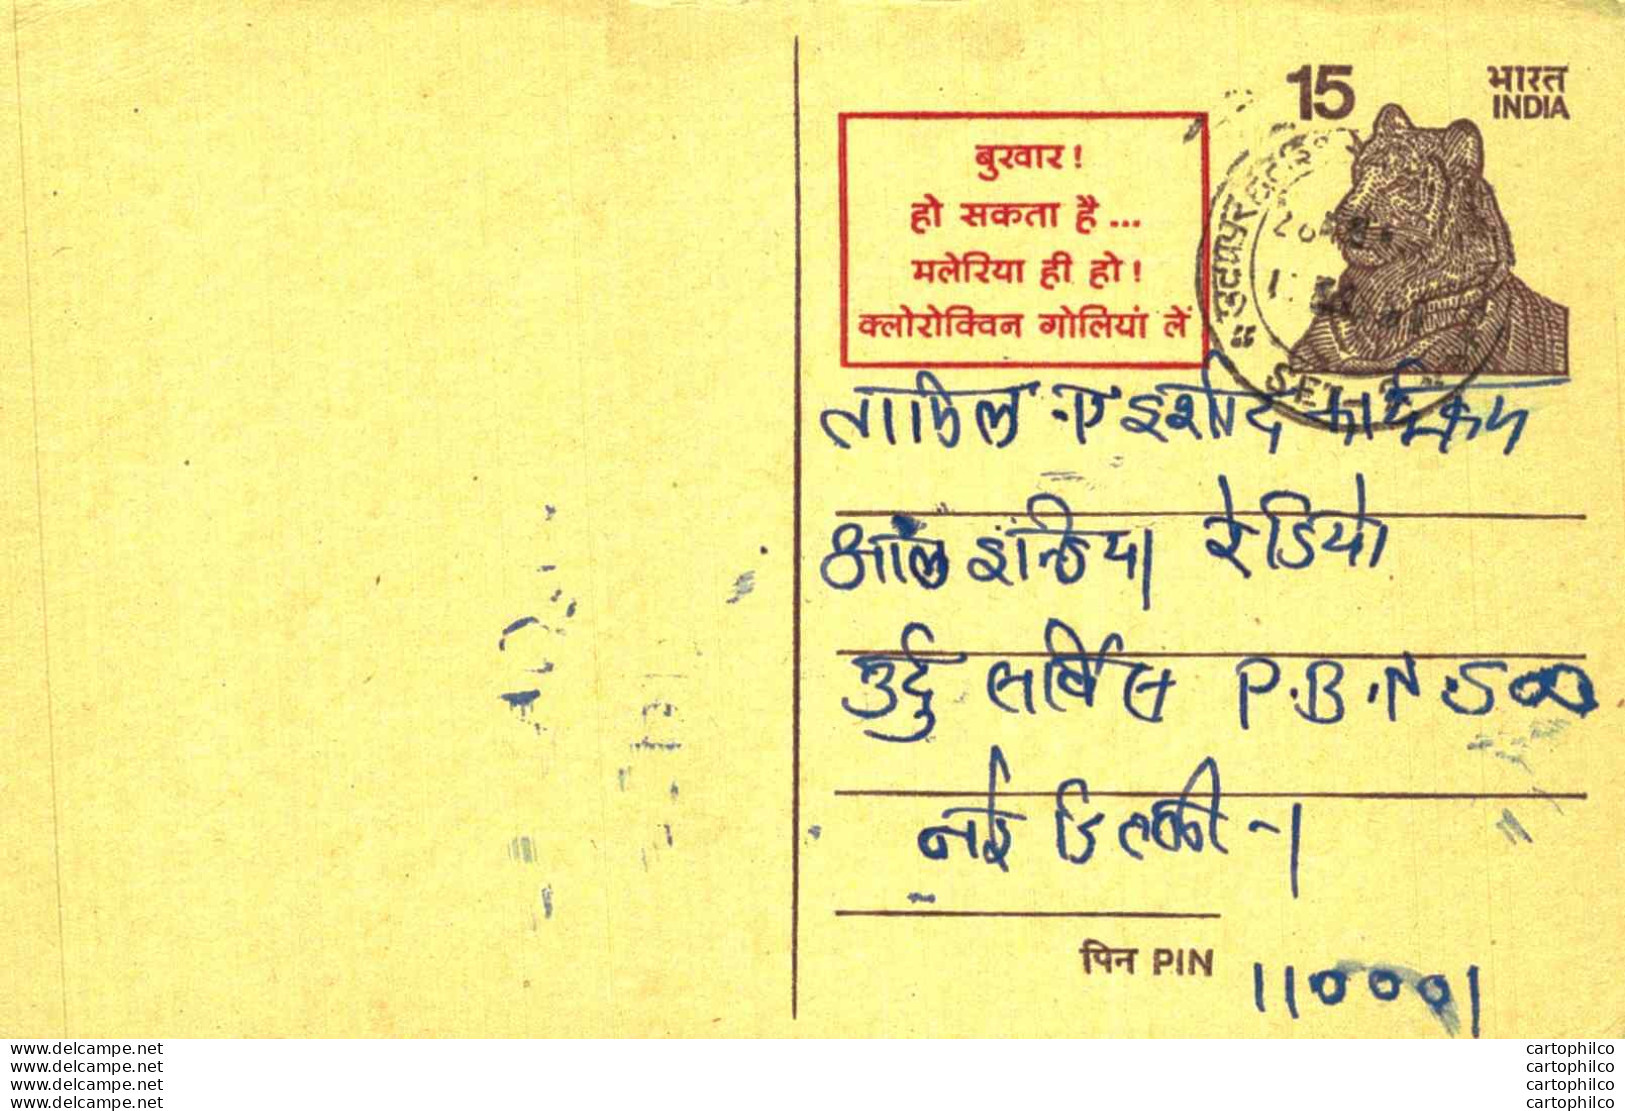 15 भारत
INDIA
बुखार !
हो सकता है ...
मलेरिया ही हो !
क्लोरोक्विन गोलियां लें
उदयपुर
SET
तामिल ए इर्शाद कार्यक्रम
ऑल इन्डिया रेडियो
उर्दु सर्विस P.B.N.500
नई दिल्ली -1
पिन PIN 110001
www.delcampe.net
www.delcampe.net
www.delcampe.net
www.delcampe.net
cartophilco
cartophilco
cartophilco
cartophilco